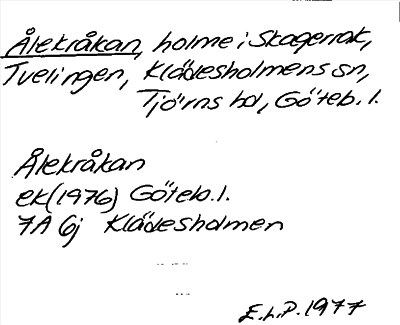 Ålekråkan, holme i Skagerrak,
Tvelingen, Klädesholmens sn,
Tjörns hd, Göteb. l.
Ålekråkan
ek (1976) Göteb. l.
7A 6j Klädesholmen
E.L.P. 1977